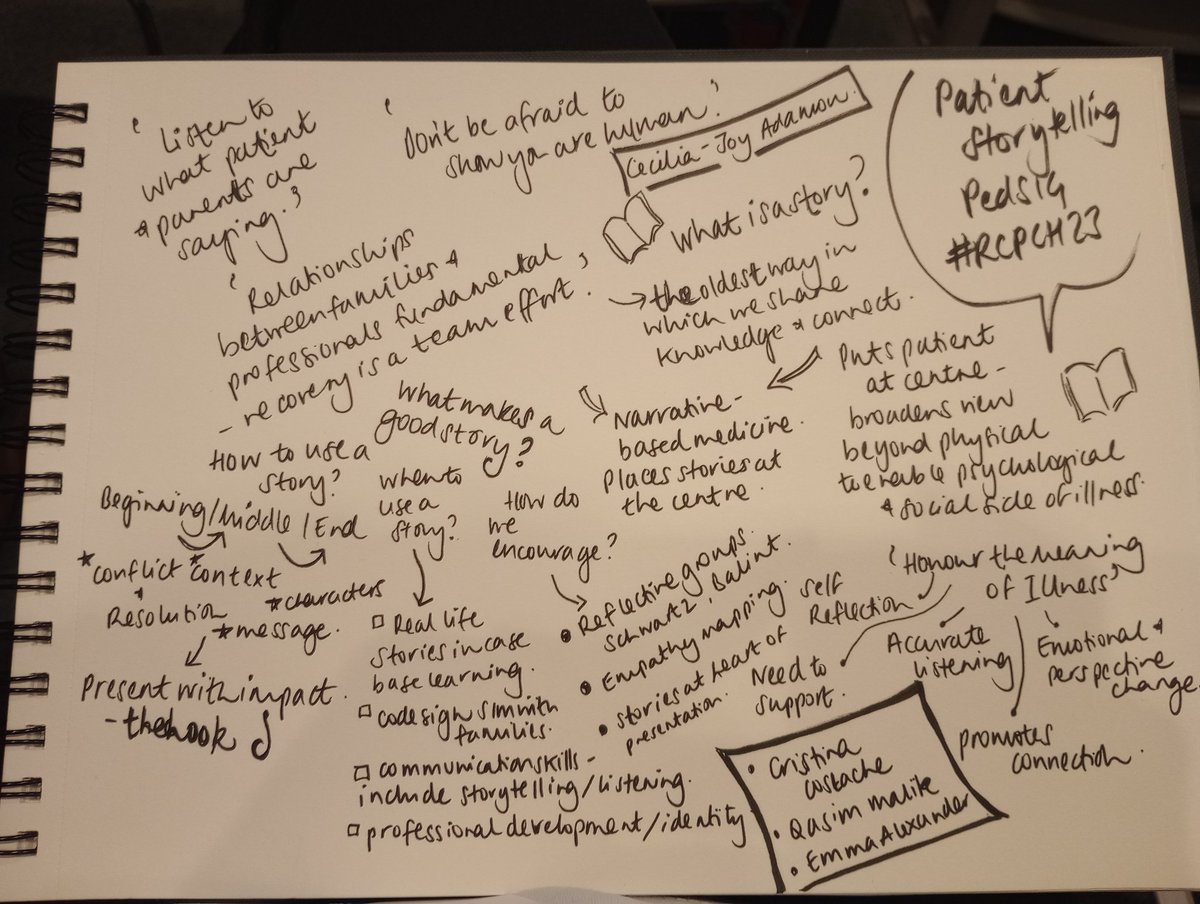 'Listen to
what patient
& parents are
saying.'
'Don't be afraid to
show you are human.'
Cecilia-Joy Adamson.
Patient
Storytelling
PedSIG
#RCPCH23
'Relationships
between families &
professionals fundamental
- recovery is a team effort.'
What is a story?
→ the oldest way in
which we share
knowledge & connect.
Narrative-
based medicine.
Places stories at
the centre.
Puts patient
at centre -
broadens view
beyond physical
to enable psychological
& social side of illness.
What makes a
good story?
How to use a
story?
Beginning/Middle/End
*conflict
&
Resolution
*context
*characters
*message.
Present with impact.
- the hook
When to
use a
story?
□ Real life
stories in case
base learning.
□ codesign sim with
families.
□ communication skills -
include storytelling/listening.
□ professional development/identity
How do
we
encourage?
• Reflective groups.
Schwartz, Balint.
• Empathy mapping.
• stories at heart of
presentation.
'Honour the meaning
of Illness'
self
Reflection
Need to
support.
Accurate
listening
Emotional &
perspective
change.
promotes
connection.
• Cristina
Costache
• Qasim Malik
• Emma Alexander